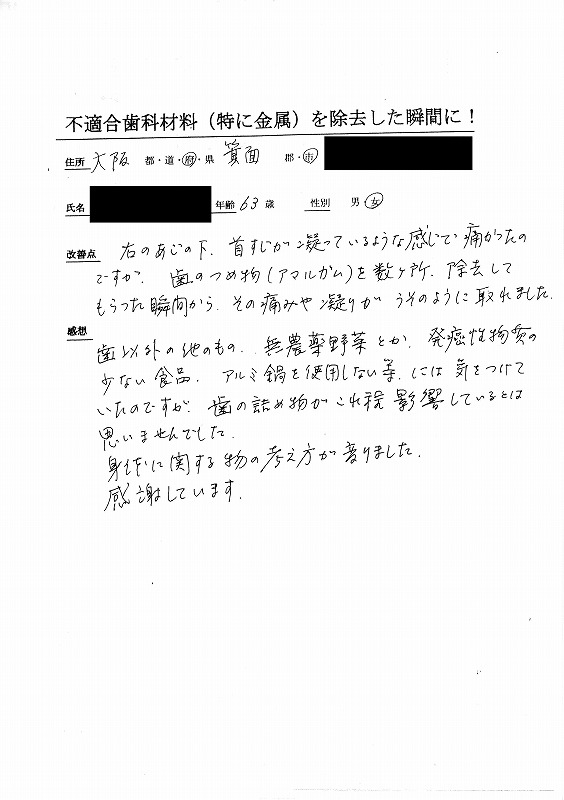 不適合歯科材料（特に金属）を除去した瞬間に！
住所 大阪 都・道・府・県 箕面 郡・市
氏名 年齢 63 歳 性別 男 女
改善点 右のあごの下、首すじが凝っているような感じで痛かったの
ですが、歯のつめ物(アマルガム)を数ヶ所、除去して
もらった瞬間から、その痛みや凝りがうそのように取れました。
感想
歯以外の他のもの、無農薬野菜とか、発癌性物質の
少ない食品、アルミ鍋を使用しない等、には気をつけて
いたのですが、歯の詰め物がこれ程影響しているとは
思いませんでした。
身体に関する物の考え方が変りました。
感謝しています。